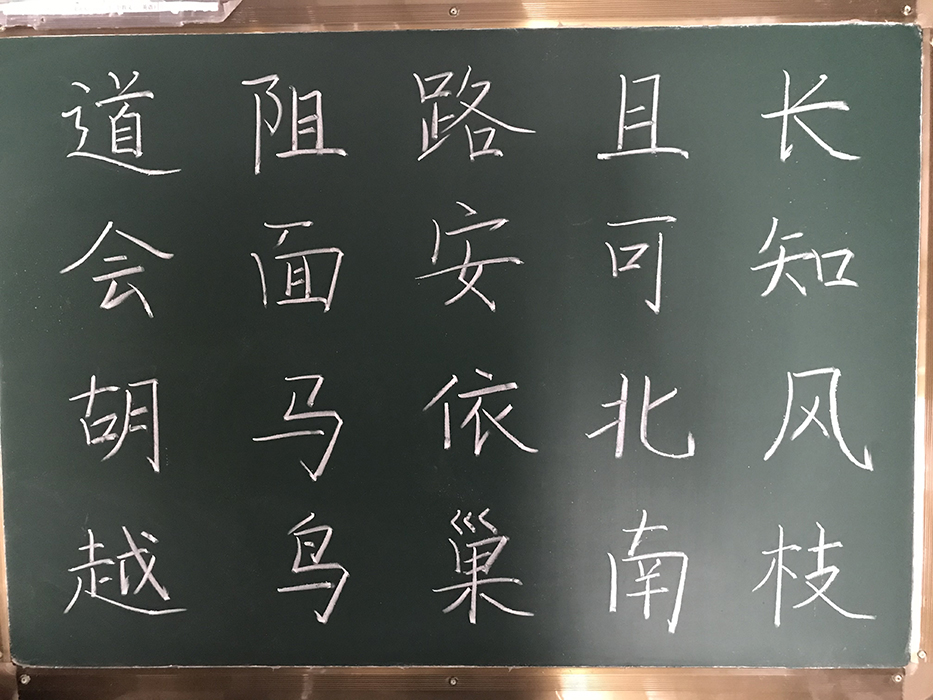 道阻路且长
会面安可知
胡马依北风
越鸟巢南枝